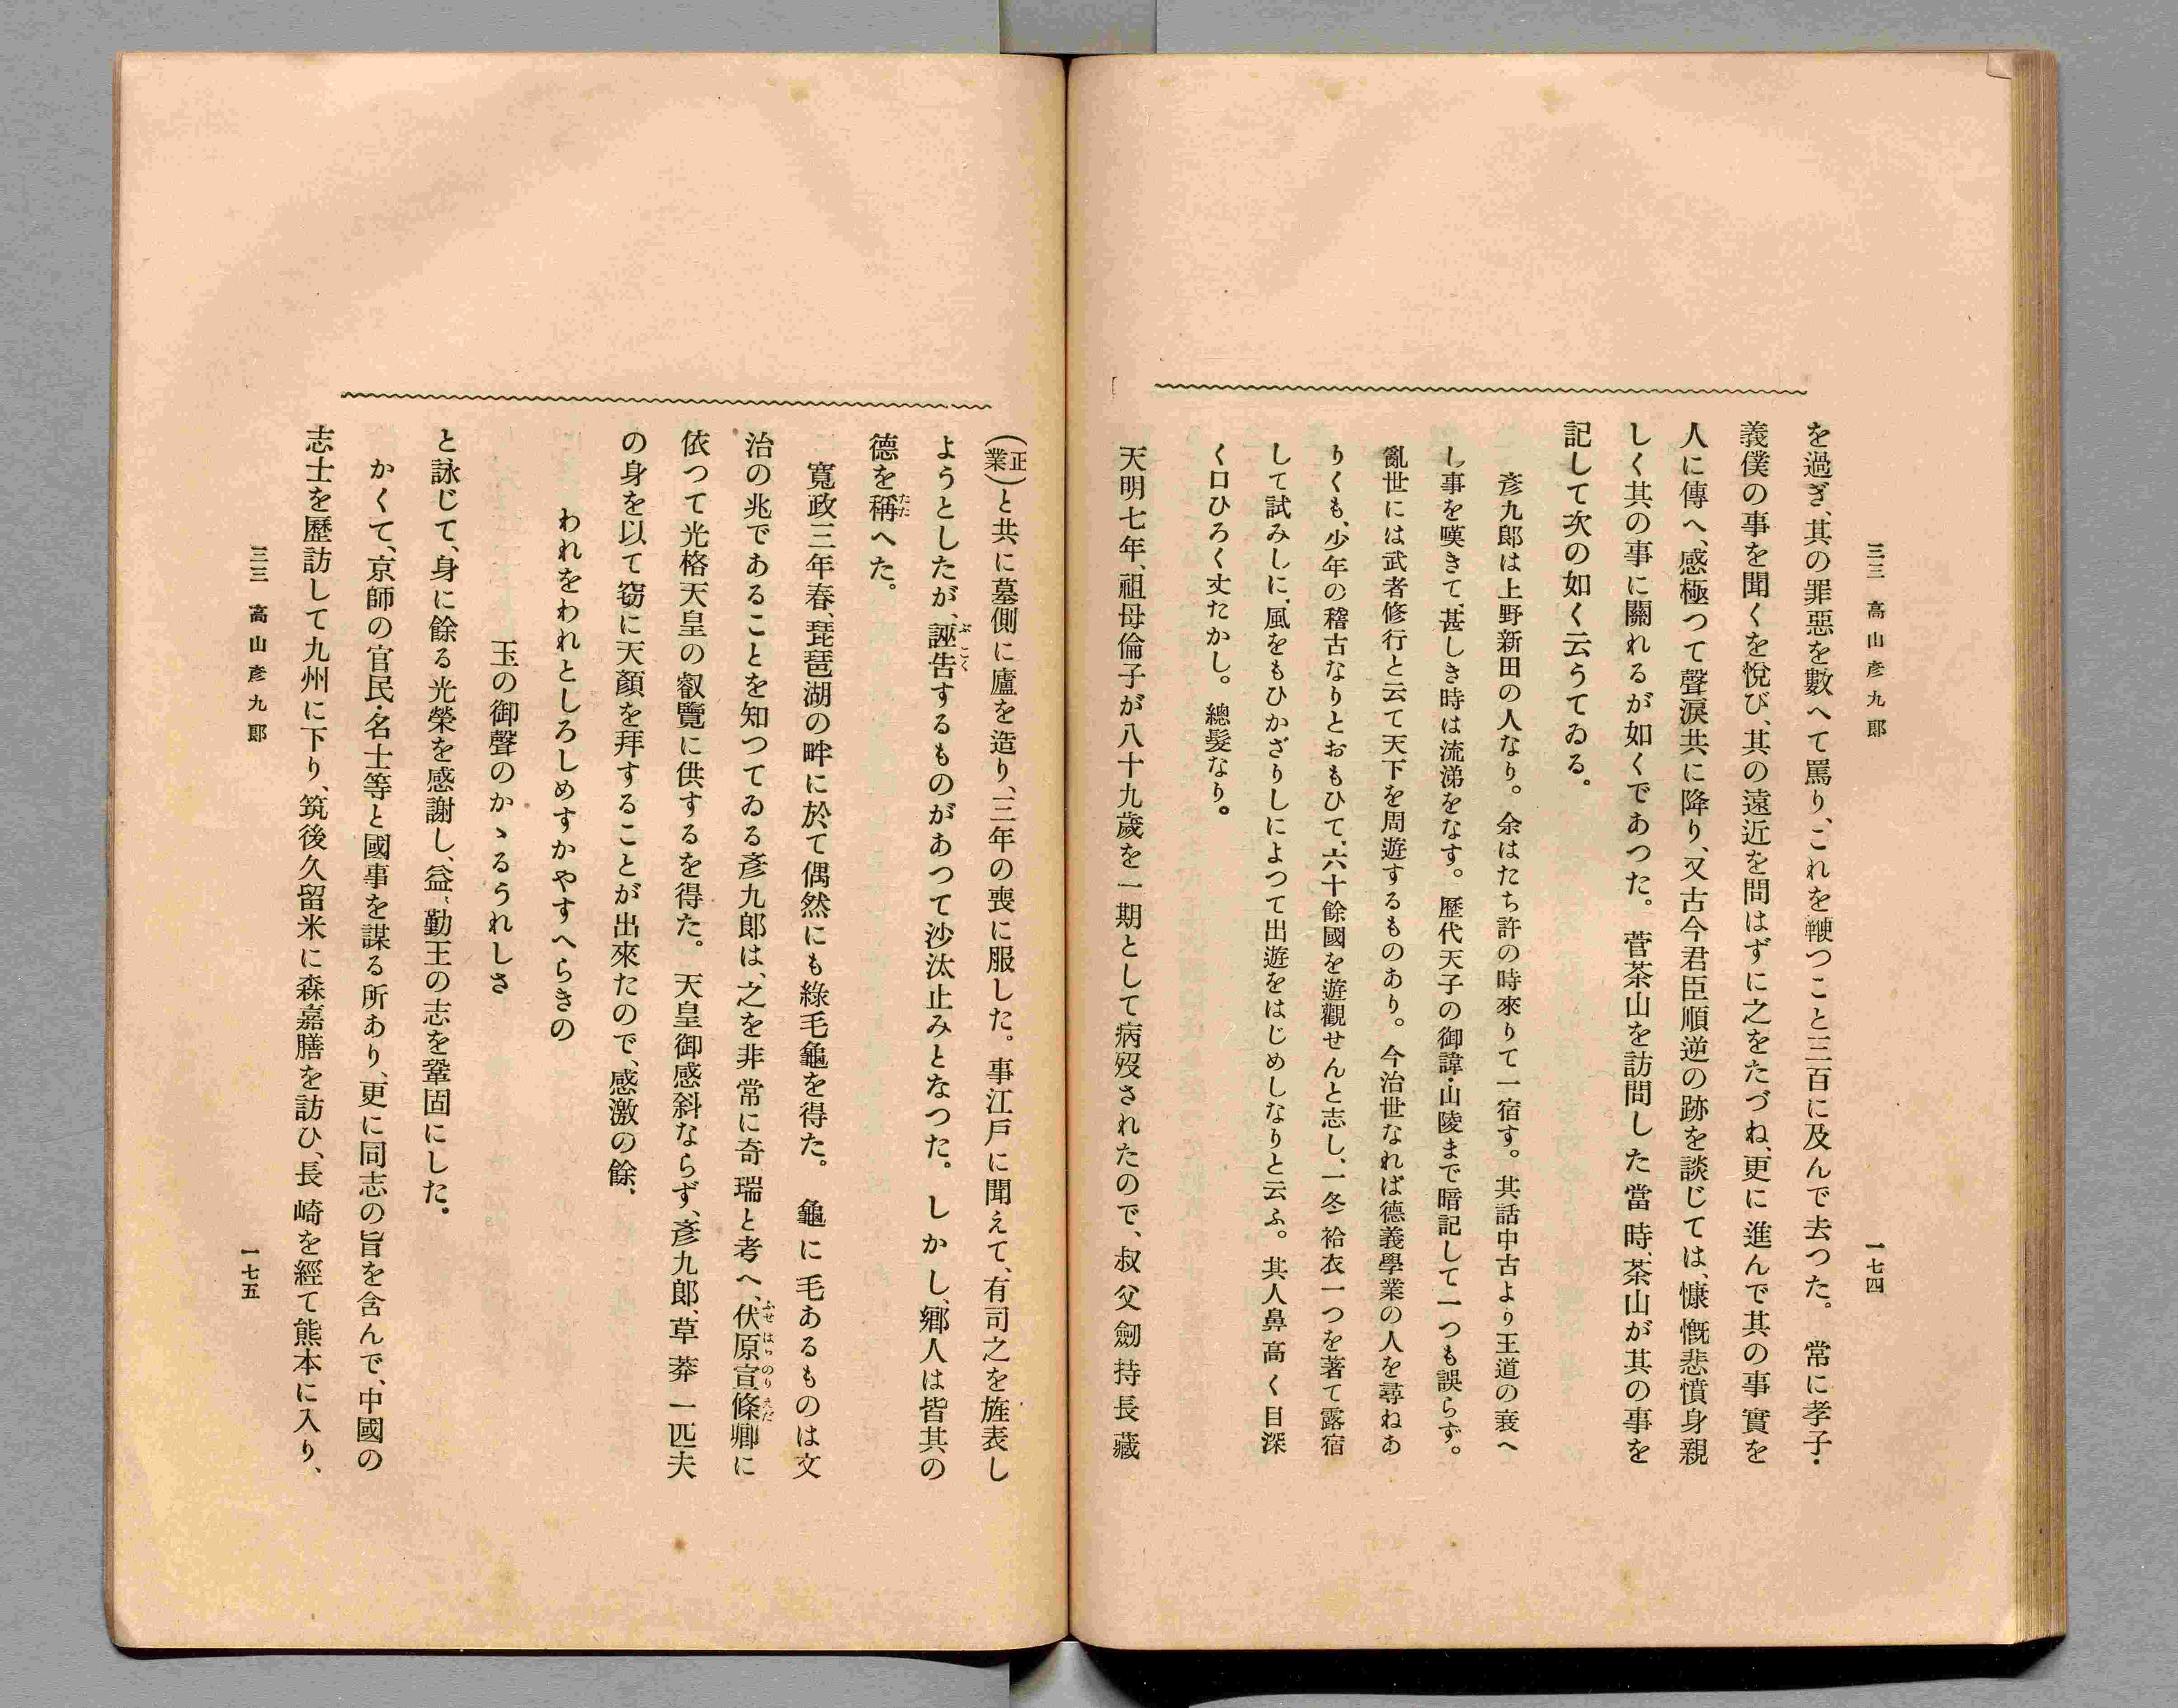 三三 高山彥九郎
一七四
を過ぎ、其の罪惡を數へて罵り、これを鞭つこと三百に及んで去つた。常に孝子・
義僕の事を聞くを悅び、其の遠近を問はずに之をたづね、更に進んで其の事實を
人に傳へ、感極つて聲淚共に降り、又古今君臣順逆の跡を談じては、慷慨悲憤身親
しく其の事に關れるが如くであつた。菅茶山を訪問した當時、茶山が其の事を
記して次の如く云うてゐる。
彥九郎は上野新田の人なり。余はたち許の時來りて一宿す。其話中古より王道の衰へ
し事を嘆きて、甚しき時は流涕をなす。歷代天子の御諱・山陵まで暗記して一つも誤らず。
亂世には武者修行と云て天下を周遊するものあり。今治世なれば德義學業の人を尋ねあ
りくも、少年の稽古なりとおもひて、六十餘國を遊觀せんと志し、一冬袷衣一つを著て露宿
して試みしに、風をもひかざりしによつて出遊をはじめしなりと云ふ。其人鼻高く目深
く口ひろく丈たかし。總髮なり。
天明七年、祖母倫子が八十九歲を一期として病歿されたので、叔父劒持長藏
(正業)と共に墓側に廬を造り、三年の喪に服した。事江戶に聞えて、有司之を旌表し
ようとしたが、誣告するものがあつて沙汰止みとなつた。しかし、鄕人は皆其の
德を稱へた。
寬政三年春、琵琶湖の畔に於て偶然にも綠毛龜を得た。龜に毛あるものは文
治の兆であることを知つてゐる彥九郎は、之を非常に奇瑞と考へ、伏原宣條卿に
依つて光格天皇の叡覽に供するを得た。天皇御感斜ならず、彥九郎、草莽一匹夫
の身を以て窃に天顏を拜することが出來たので、感激の餘、
われをわれとしろしめすかやすへらきの
玉の御聲のかゝるうれしさ
と詠じて、身に餘る光榮を感謝し、益〻勤王の志を鞏固にした。
かくて、京師の官民・名士等と國事を謀る所あり、更に同志の旨を含んで、中國の
志士を歷訪して九州に下り、筑後久留米に森嘉膳を訪ひ、長崎を經て熊本に入り、
三三 高山彥九郎
一七五